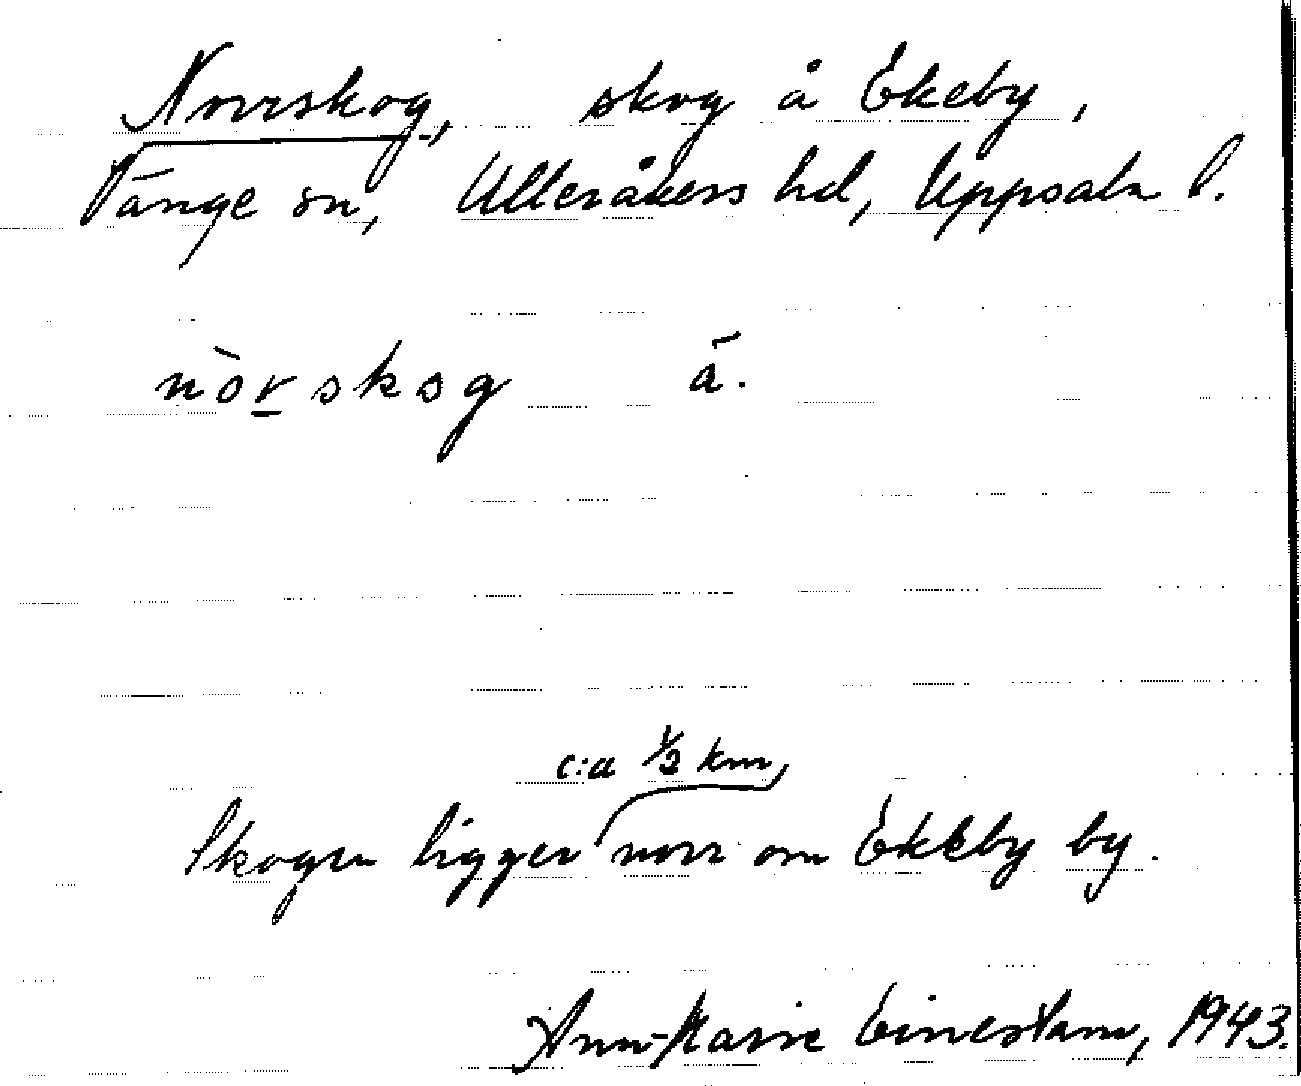 Norrskog, skog å Ekeby,
Vänge sn, Ulleråkers hd, Uppsala l.
nòrskog ä.
c:a 1/2 km,
Skogen ligger norr om Ekeby by.
Ann-Marie Einerstam, 1943.